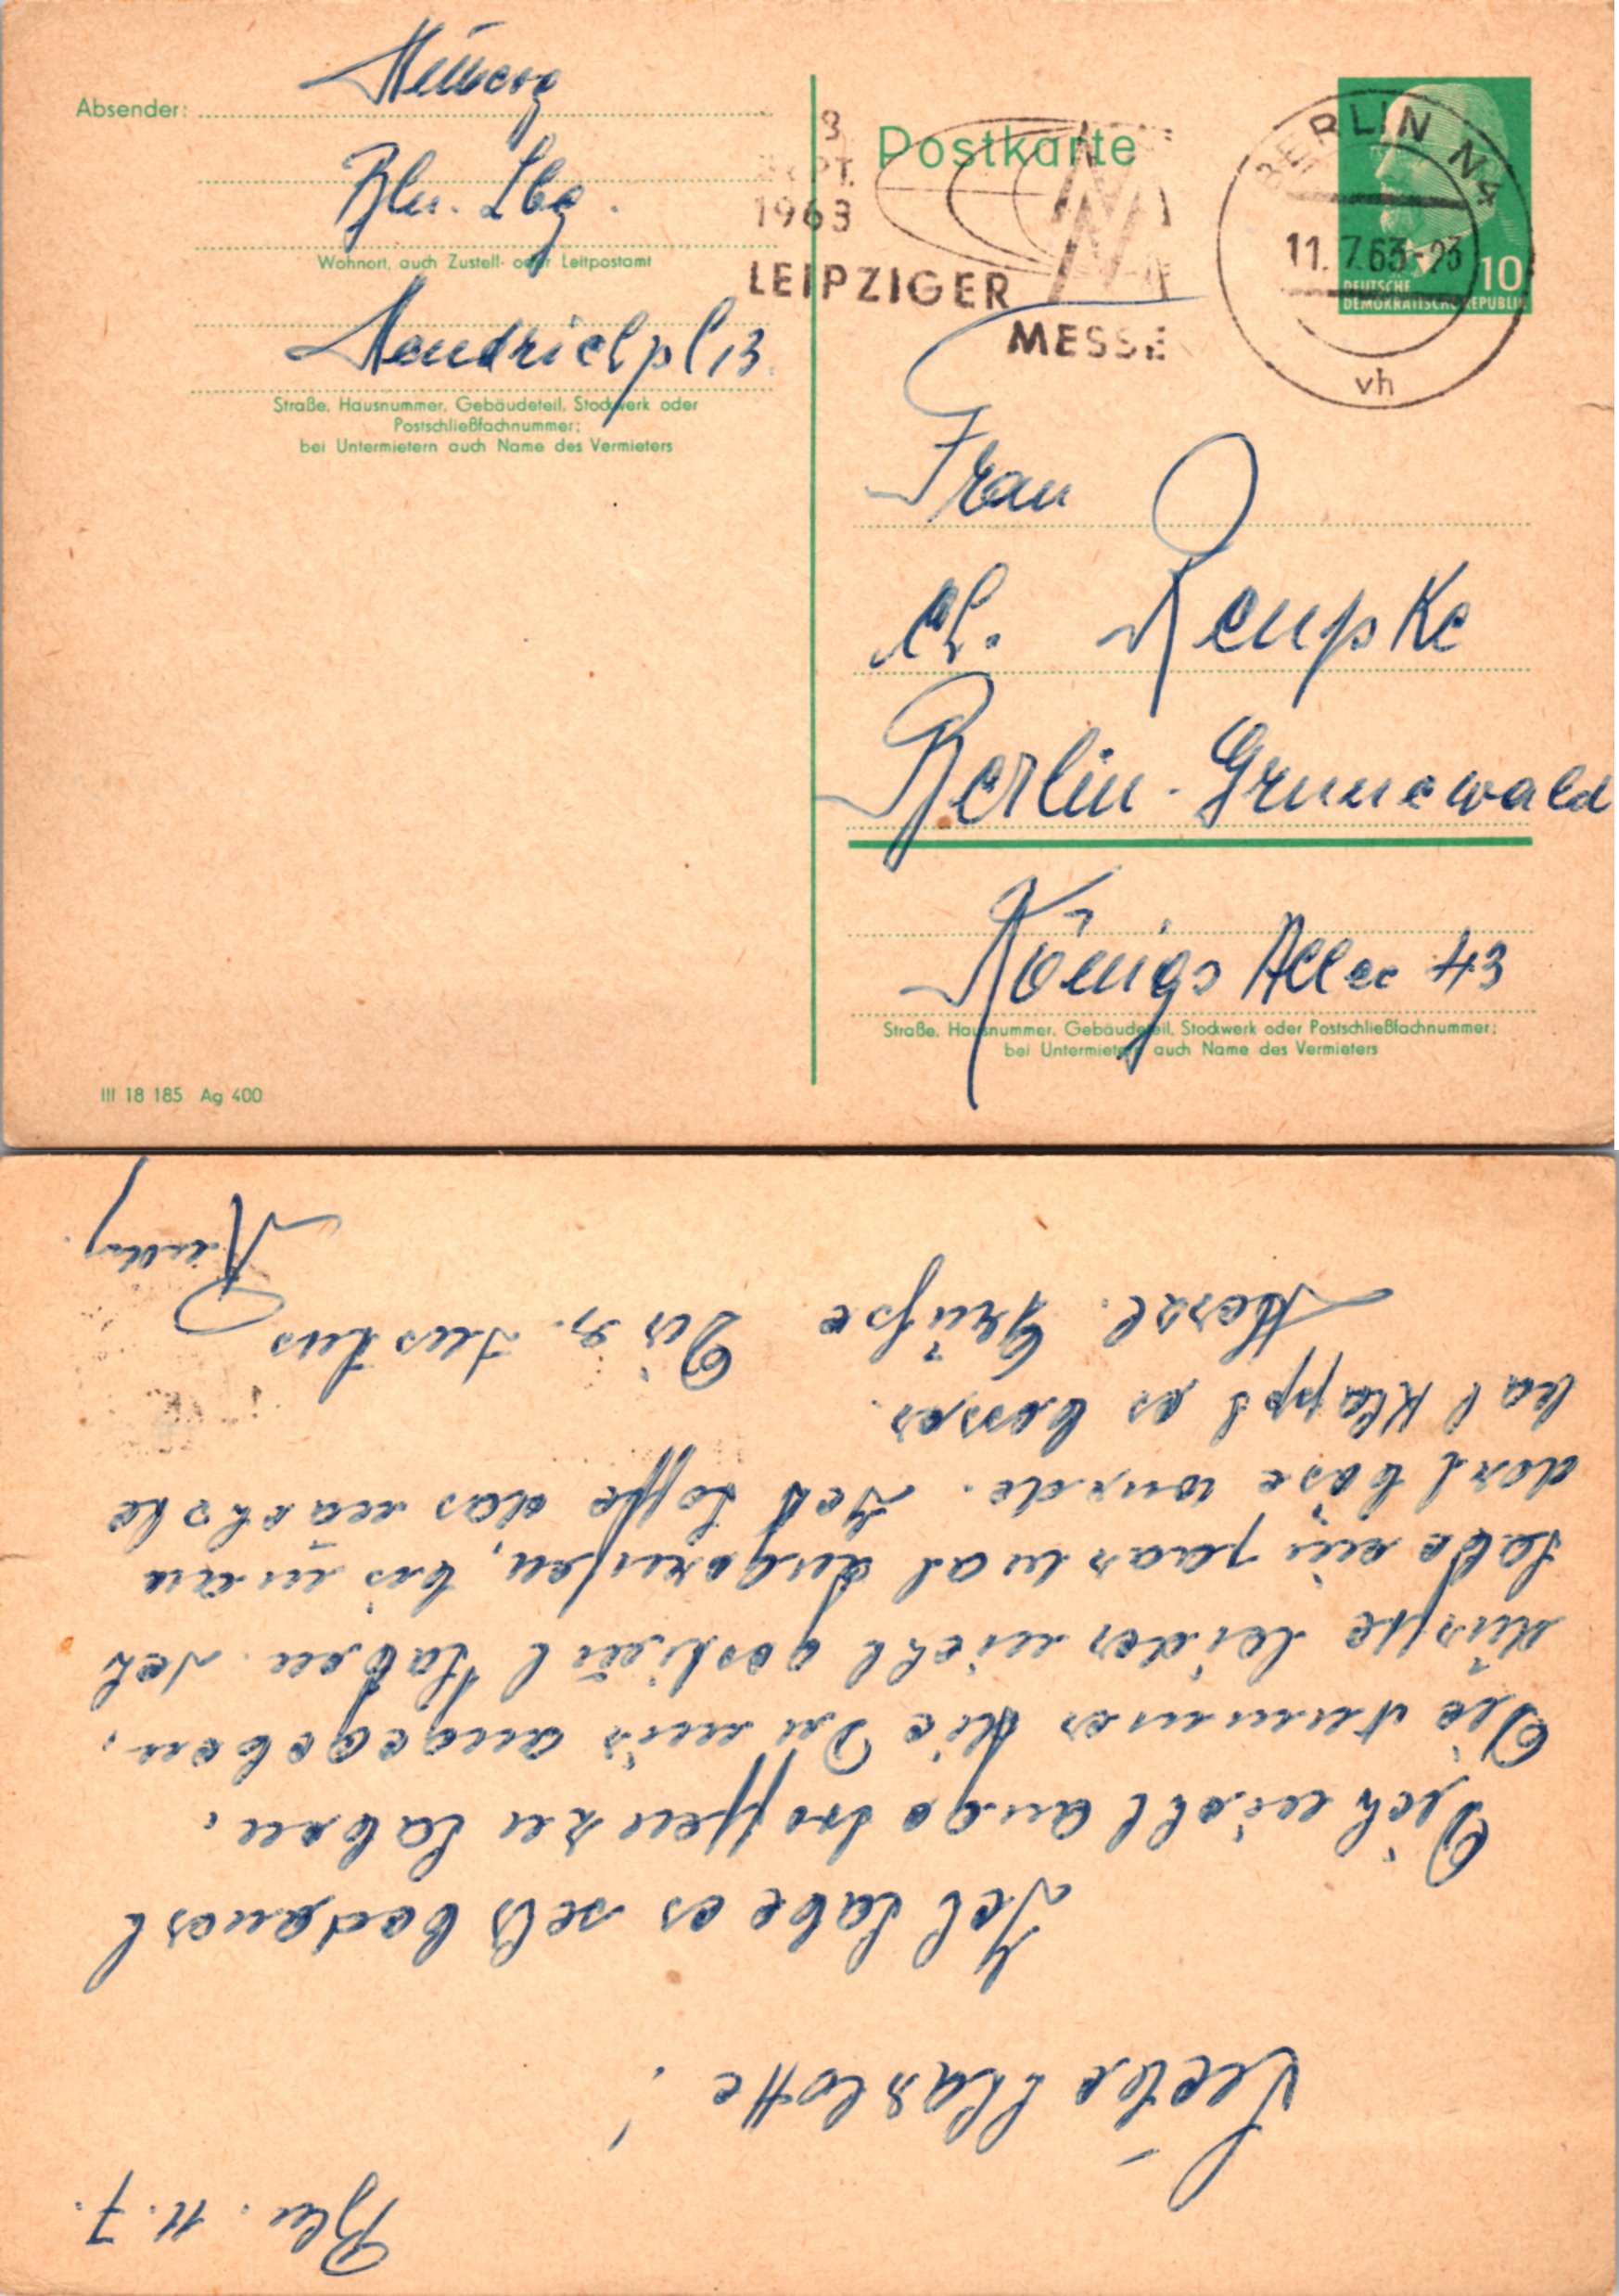 Absender:
Bln. Lbg.
Wohnort, auch Zustell- oder Leitpostamt
Hendrichpl 13.
Straße, Hausnummer, Gebäudeteil, Stockwerk oder
Postschließfachnummer;
bei Untermietern auch Name des Vermieters
III 18 185 Ag 400
Postkarte
SEPT.
1963
LEIPZIGER
MESSE
BERLIN N4
11.7.63-23
vh
10
DEUTSCHE
DEMOKRATISCHE REPUBLIK
Frau
Ch. Reupke
Berlin-Grunewald
Königs Allee 43
Straße, Hausnummer, Gebäudeteil, Stockwerk oder Postschließfachnummer;
bei Untermietern auch Name des Vermieters
Bln. 11.7.
Liebe Charlotte!
Ich habe es sehr bedauert
Dich nicht angetroffen zu haben.
Die Nummer die Du mir angegeben,
müsste leider nicht gestimmt haben. Ich
habe ein paar mal angerufen, bis man
dort böse wurde. Ich hoffe das nächste
mal klappt es besser.
Herzl. Grüße Dir u.